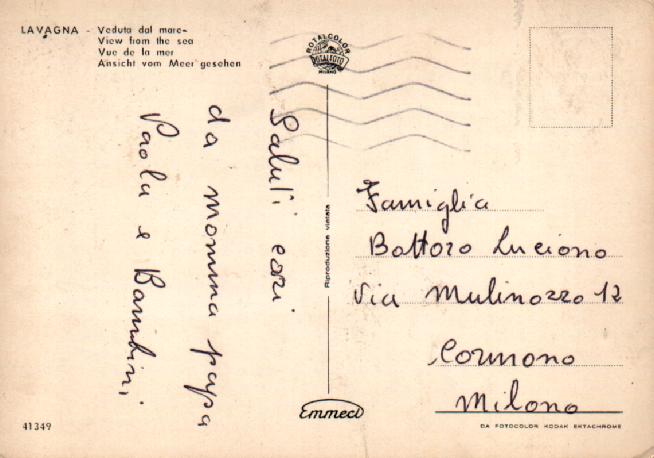 LAVAGNA - Veduta dal mare-
View from the sea
Vue de la mer
Ansicht vom Meer gesehen
ROTALCOLOR
ROTALFOTO
MILANO
Saluti cari
da mamma papa
Paola e Bambini
Riproduzione vietata
Famiglia
Bottoro Luciano
Via Mulinazzo 12
Cormano
Milano
Emmeci
41349
DA FOTOCOLOR KODAK EKTACHROME